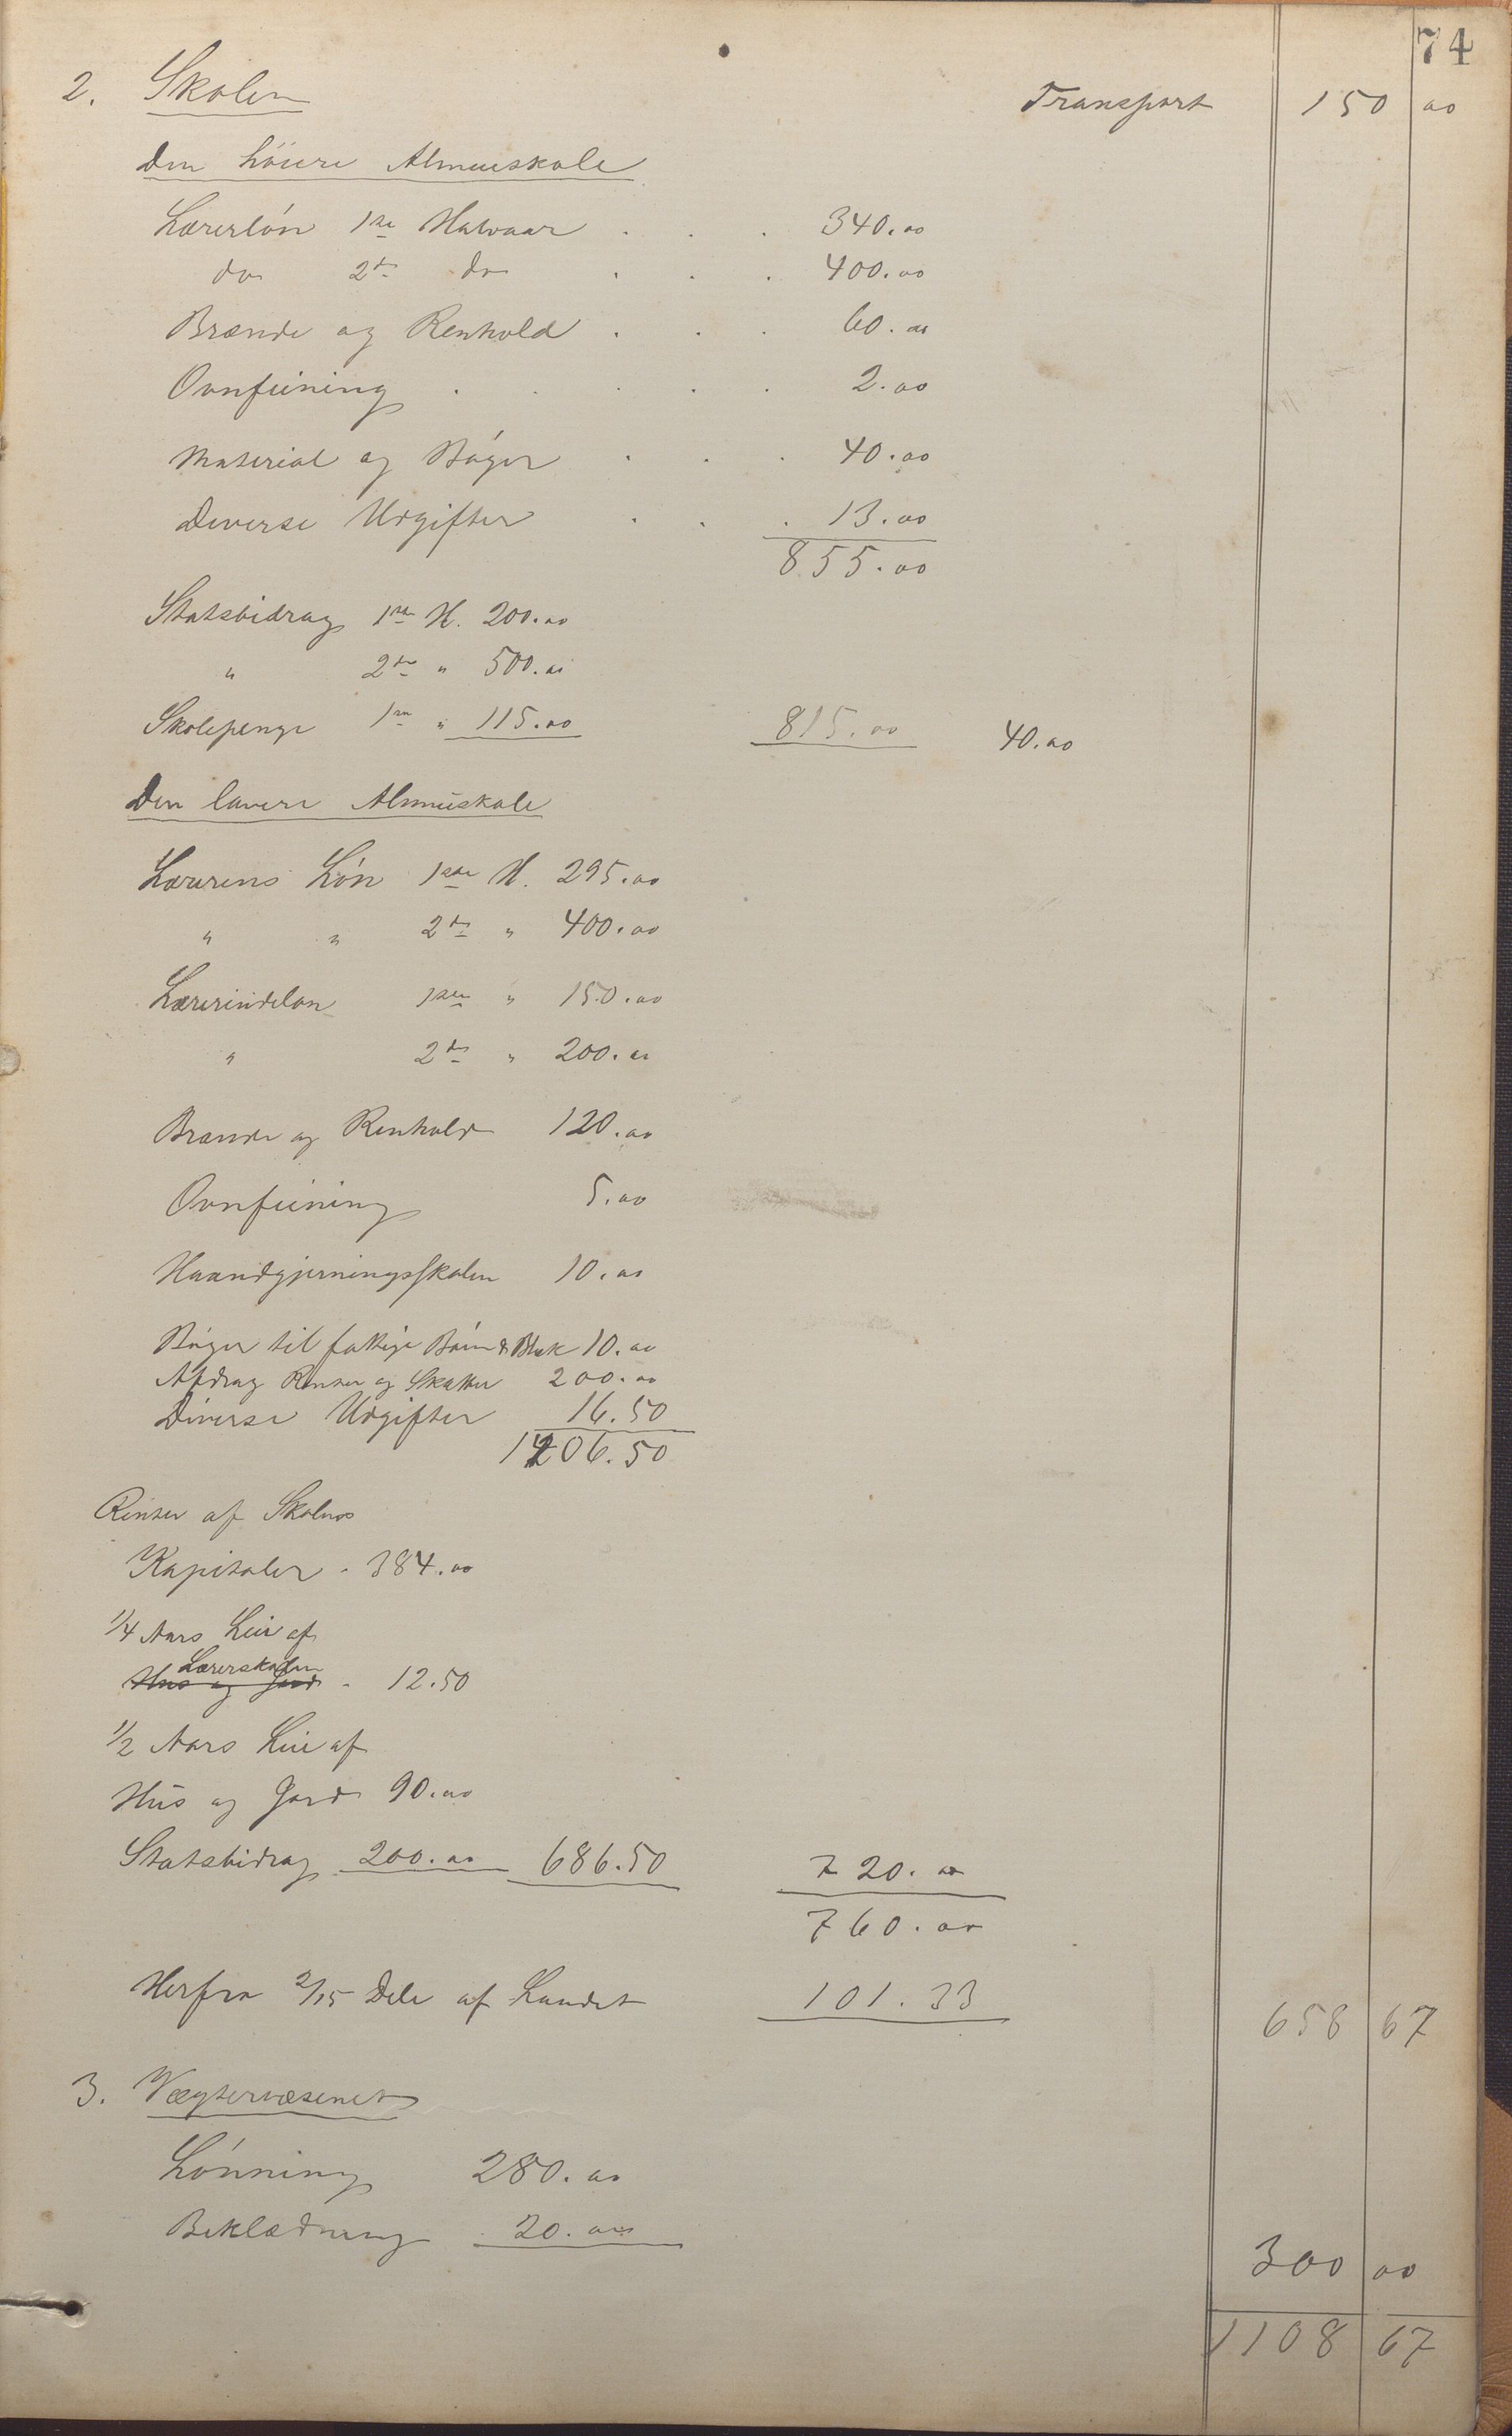 74
2. Skolen Transport 150 00
Den höiere Almueskole
Lærerlón 1ste Halvaar . . . 340.00
do 2den do . . . 400.00
Brænde og Renhold . . . 60.00
Ovnfeining . . . . . 2.00
Material og Bóger . . . 40.00
Diverse Udgifter . . . 13.00
855.00
Statsbidrag 1ste H. 200.00
" 2det " 500.00
Skolepenge 1ste " 115.00 815.00 40.00
Den lavere Almuskole
Lærerens Lón 1ste H. 295.00
" " 2det " 400.00
Lærerindelon 1ste " 150.00
" 2det " 200.00
Brænde og Renhold 120.00
Ovnfeining 5.00
Haandgjerningsskolen 10.00
Bóger til fattige Bórn & Blæk 10.00
Afdrag Renter og Skatter 200.00
Diverse Udgifter 16.50
1406.50
Renter af Skolens
Kapitaler - 384.00
1/4 Aars Leie af
Lærerskolen
Hus og Gaard - 12.50
1/2 Aars Leie af
Hus og Gard 90.00
Statsbidrag 200.00 686.50 720.00
760.00
Herfra 2/15 Dele af Landet 101.33 658 67
3. Vægtervæsenet
Lónning 280.00
Beklædning 20.00
300 00
1108 67